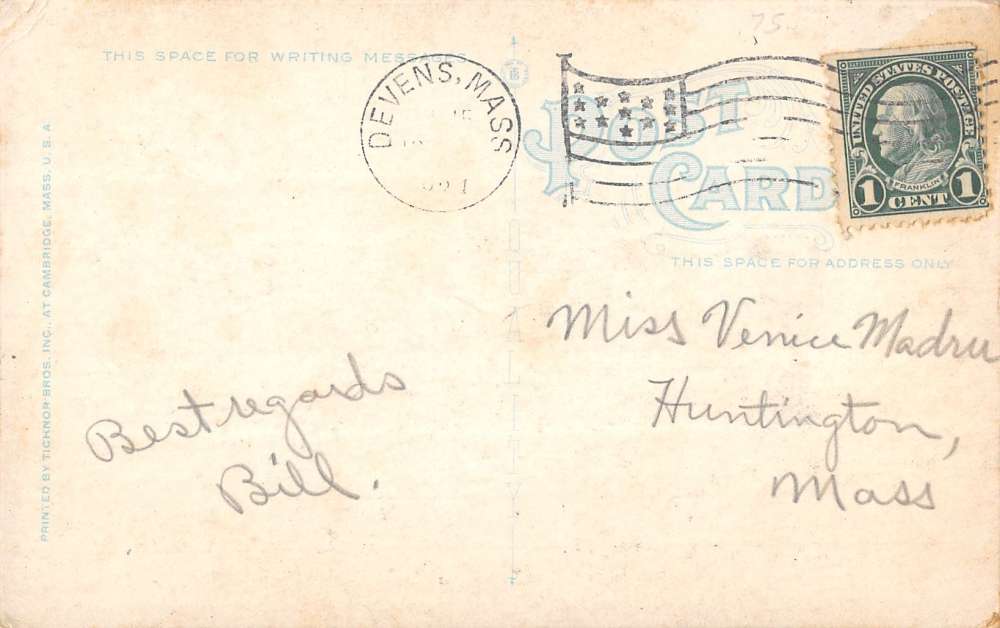 75
THIS SPACE FOR WRITING MESSAGES
DEVENS, MASS
POST
CARD
UNITED STATES POSTAGE
FRANKLIN
1 CENT 1
THIS SPACE FOR ADDRESS ONLY
Miss Venice Madru
Huntington,
Mass
Best regards
Bill.
PRINTED BY TICHNOR BROS. INC., AT CAMBRIDGE, MASS. U. S. A